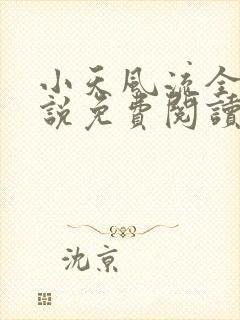 小天風流全
說免費閱讀
沈京